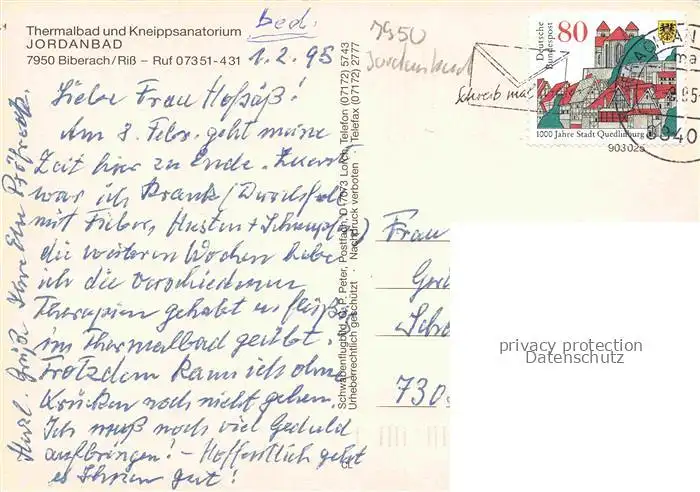 bed.
Thermalbad und Kneippsanatorium
JORDANBAD
7950 Biberach/Riß – Ruf 07351-431
1.2.95
Liebe Frau Hofsäß!
Am 8. Febr. geht meine
Zeit hier zu Ende. Zuerst
war ich krank (Durchfall
mit Fieber, Husten + Schnupfen)
die weiteren Wochen habe
ich die verschiedenen
Therapien gehabt u. fleißig
im Thermalbad geübt.
Trotzdem kann ich ohne
Krücken noch nicht gehen.
Ich muß noch viel Geduld
aufbringen! – Hoffentlich geht
es Ihnen gut!
Herzl. Grüße Ihre Elu
Schwabenflugbild, G. P. Peter, Postfach, D-7073 Lorch, Telefon (07172) 5743
Urheberrechtlich geschützt · Nachdruck verboten · Telefax (07172) 2777
7950
Jordanbad
Schreib mal
Deutsche
Bundespost
80
1000 Jahre Stadt Quedlinburg
903025
8840
Frau
Schr
730
privacy protection
Datenschutz